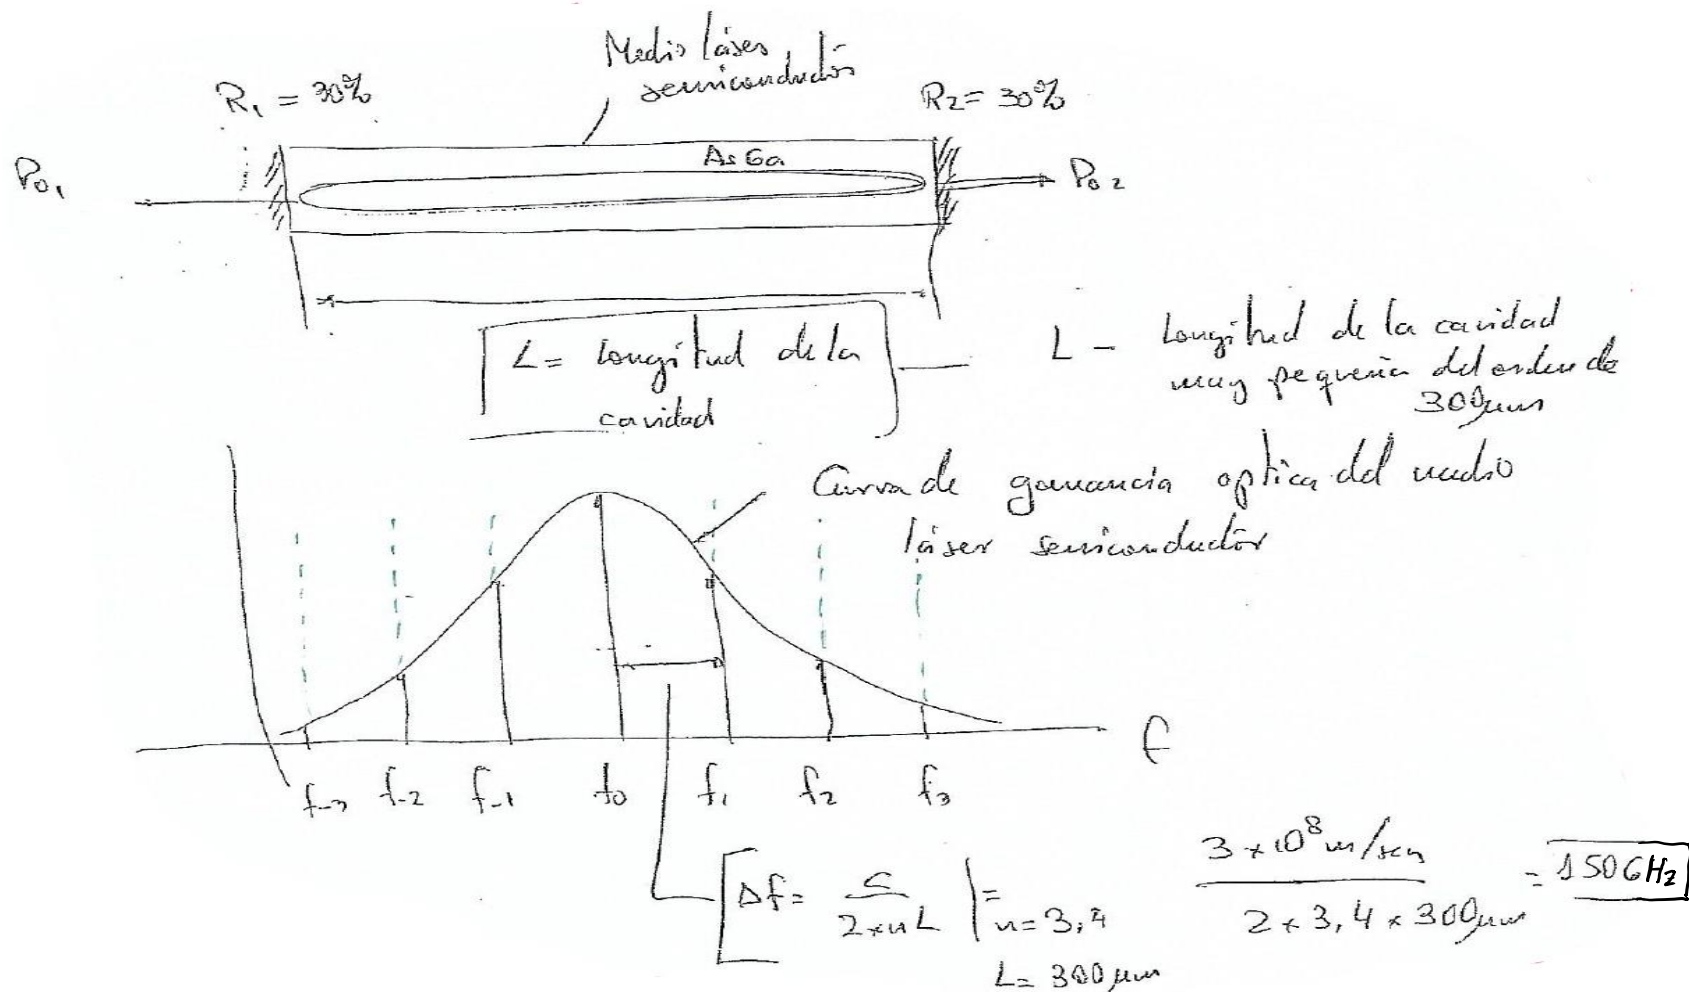 Medio láser
semiconductor
R₁ = 30%
R₂ = 30%
AsGa
P₀₁
P₀₂
L = longitud de la
cavidad
L - longitud de la cavidad
muy pequeña del orden de
300μm
Curva de ganancia optica del medio
láser semiconductor
f
f₋₃ f₋₂ f₋₁ f₀ f₁ f₂ f₃
Δf = c / 2×nL | n=3,4 L=300μm = 3×10⁸ m/seg / 2×3,4×300μm = 150GHz